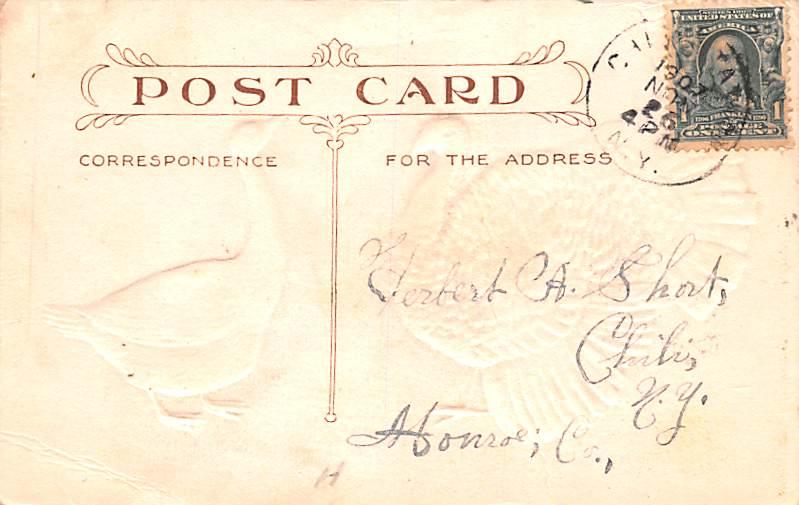 POST CARD
CORRESPONDENCE
FOR THE ADDRESS
SERIES 1902
UNITED STATES OF
AMERICA
1 FRANKLIN 1
POSTAGE
ONE CENT
1907
NOV
26
4 PM
N.Y.
Herbert A. Short,
Chili,
N.Y.
Monroe, Co.,
H